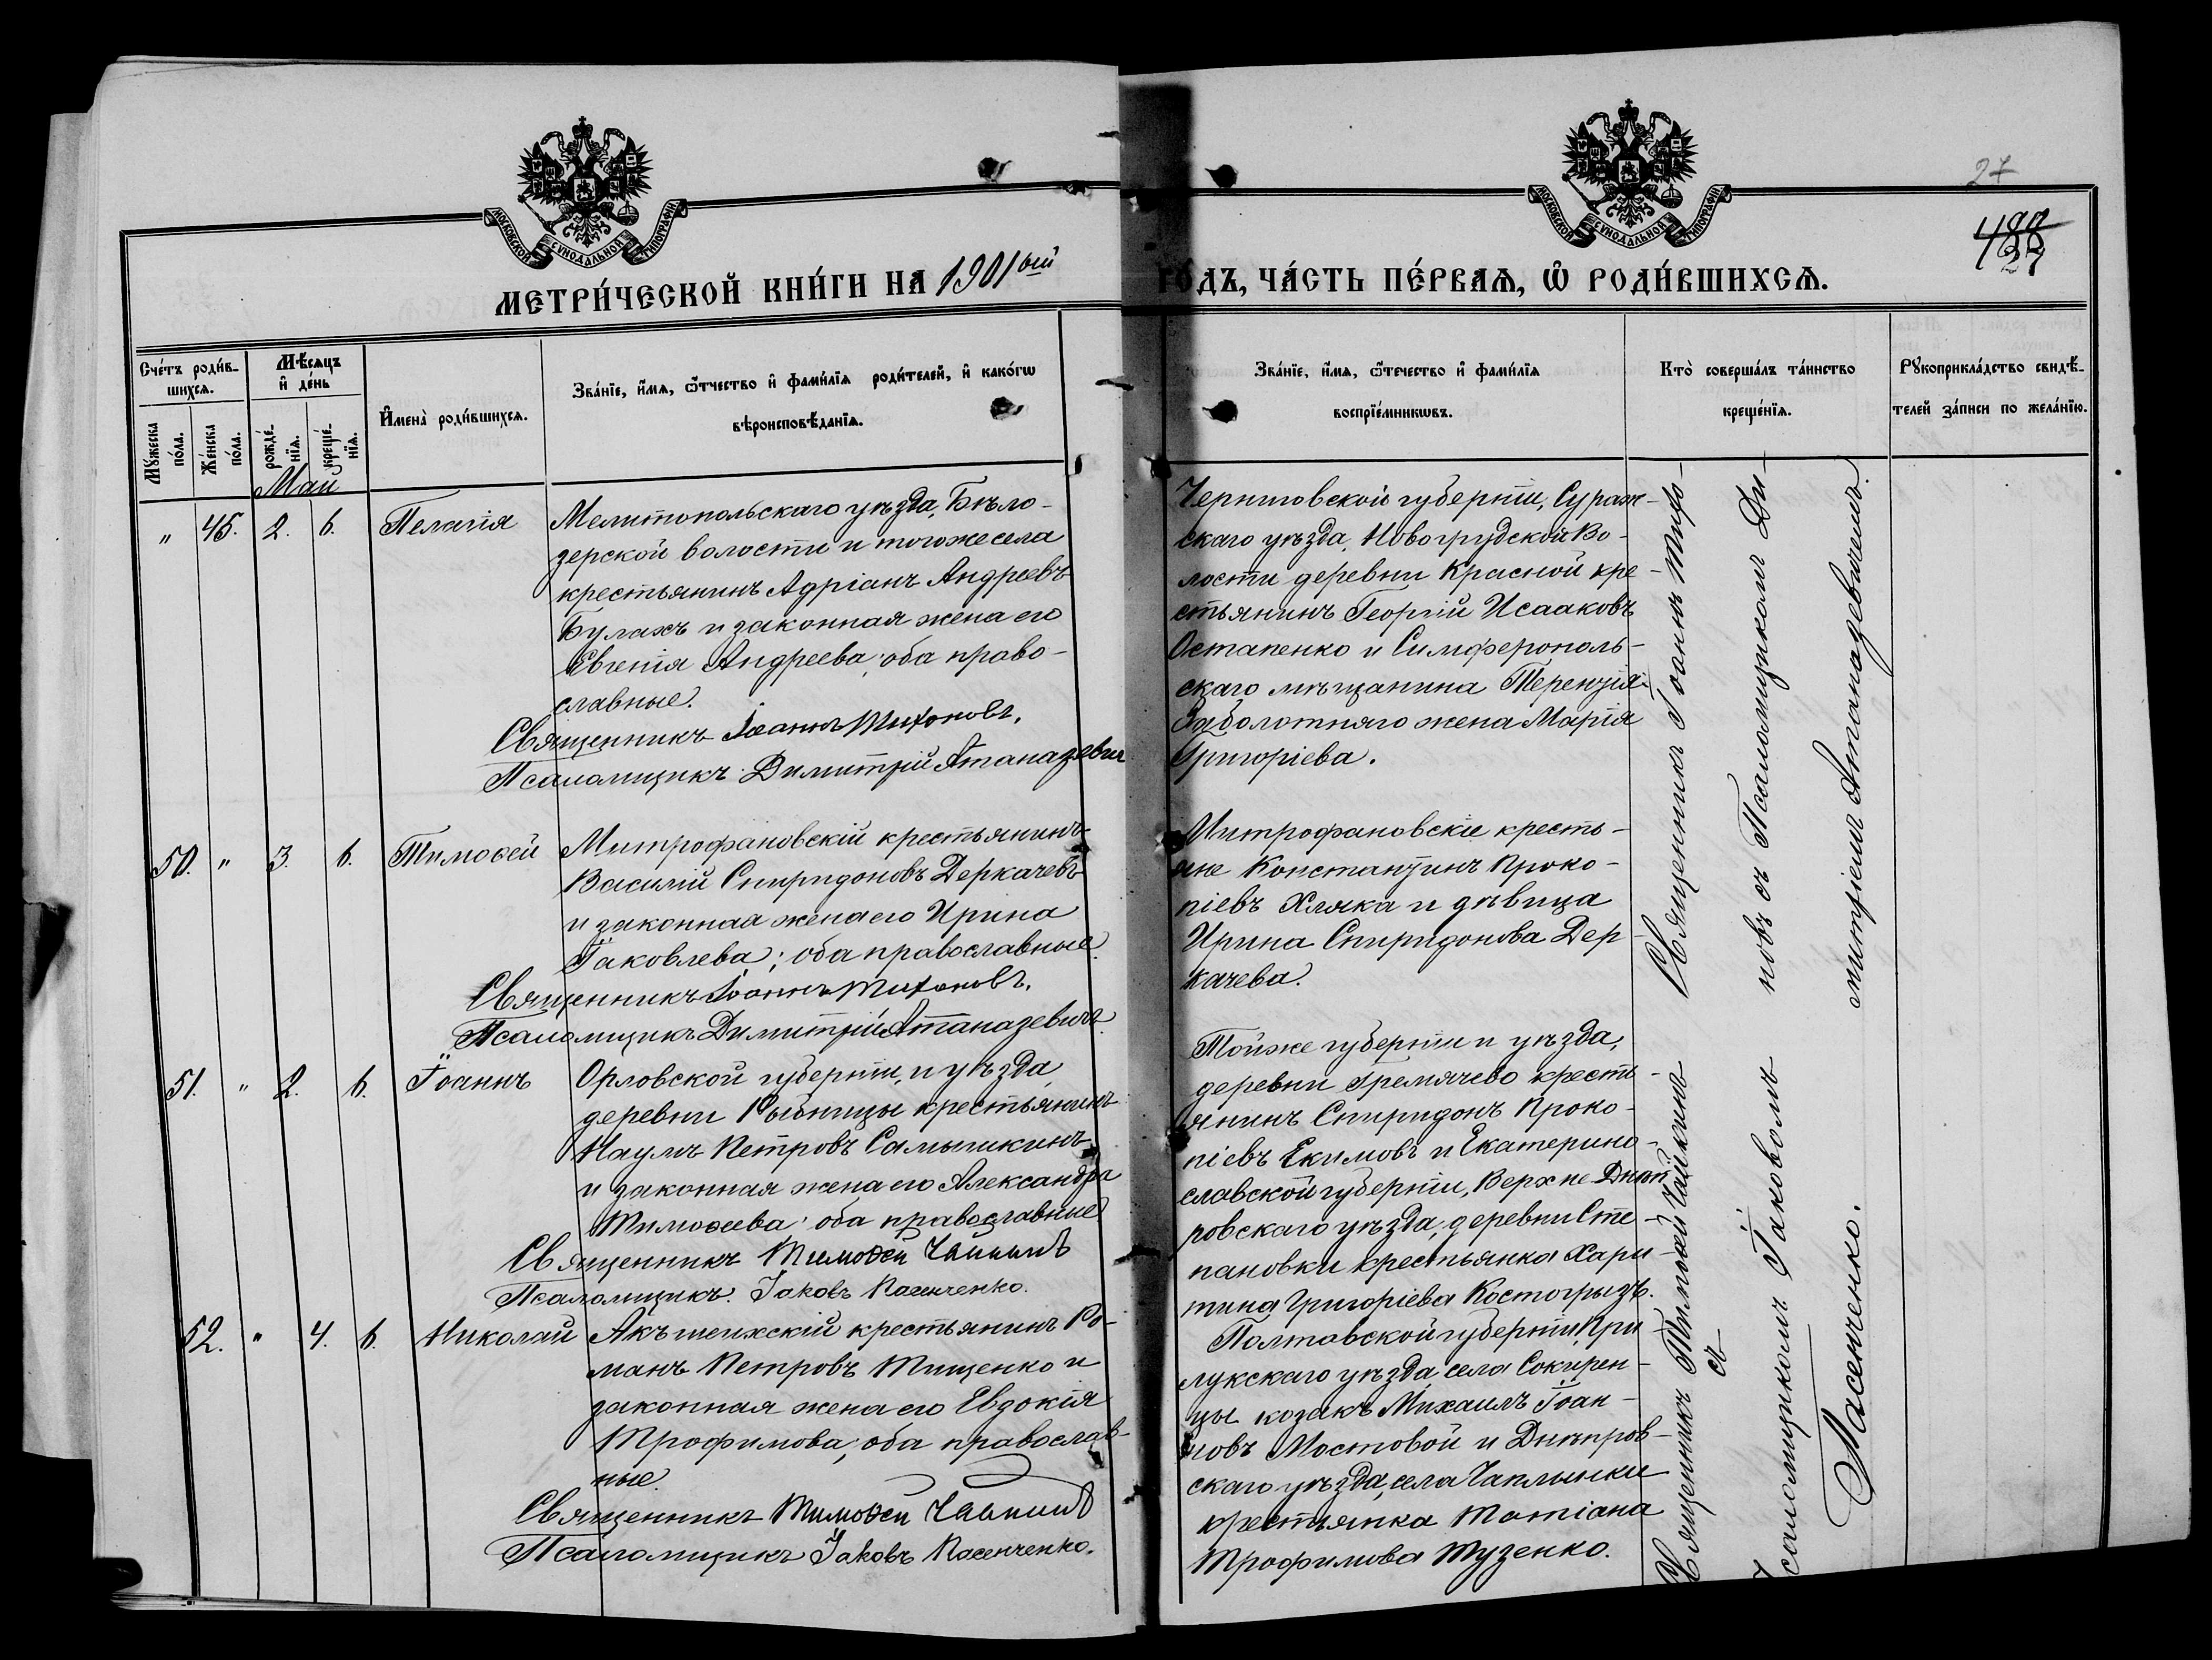 27
МОСКОВСКОЙ СѴНОДАЛЬНОЙ ТИПОГРАФІИ
МОСКОВСКОЙ СѴНОДАЛЬНОЙ ТИПОГРАФІИ
27
МЕТРИ́ЧЕСКОЙ КНИ́ГИ НА 1901ый
ГО́ДЪ, ЧА́СТЬ ПЕ́РВАѦ, Ѡ РОДИ́ВШИХСѦ.
Сче́тъ роди́в-
шихсѧ.
Мꙋ́жеска по́ла.
Же́нска по́ла.
Мѣ́сѧцъ и де́нь
рожде́-нїѧ.
креще́-нїѧ.
Имена̀ роди́вшихсѧ.
Зва́нїе, и́мѧ, ѻ́тчество и фами́лїѧ роди́телей, и како́гѡ
вѣроисповѣ́данїѧ.
Зва́нїе, и́мѧ, ѻ́течество и фами́лїѧ
воспрїе́мникѡвъ.
Кто̀ соверша́лъ та́инство
креще́нїѧ.
Рꙋкоприкла́дство свидѣ́-
телей за́писи по жела́нїю.
Май
" 45. 2. 6. Пелагія
Мелитопольскаго уѣзда, Бѣло-
зерской волости и тогоже села
крестьянинъ Адріанъ Андреевъ
Булахъ и законная жена его
Евгенія Андреева; оба право-
славные.
Священникъ Іоаннъ Тихоновъ.
Псаломщикъ Димитрій Атаназевич
Черниговской губерніи, Сураж-
скаго уѣзда, Новогрудской Во-
лости деревни Красной кре-
стьянинъ Георгій Исааковъ
Остапенко и Симферополь-
скаго мѣщанина Терентія
Заболотняго жена Марія
Григоріева.
50. " 3. 6. Тимоѳей
Митрофановскій крестьянинъ
Василій Спиридоновъ Деркачевъ
и законная жена его Ирина
Іаковлева; оба православные.
Священникъ Іоаннъ Тихоновъ.
Псаломщикъ Димитрій Атаназевичъ.
Митрофановскіе кресть-
яне Константинъ Проко-
піевъ Хляка и дѣвица
Ирина Спиридонова Дер-
качева.
Священникъ Іоаннъ Тихо-
новъ съ Псаломщикомъ Ди-
митріемъ Атаназевичемъ.
51. " 2. 6. Іоаннъ
Орловской губерніи, и уѣзда,
деревни Рыбницы крестьянинъ
Наумъ Петровъ Самышкинъ
и законная жена его Александра
Тимоѳеева; оба православные.
Священникъ Тимоѳей Чайкинъ
Псаломщикъ Іаковъ Пасенченко.
Тойже губерніи и уѣзда,
деревни Гремячево кресть-
янинъ Спиридонъ Проко-
піевъ Екимовъ и Екатерино-
славской губерніи, Верхне Днѣп-
ровскаго уѣзда, деревни Сте-
пановки крестьянка Хари-
тина Григоріева Костогрызъ.
52. " 4. 6. Николай
Акъ-шеихскій крестьянинъ Ро-
манъ Петровъ Тищенко и
законная жена его Евдокія
Трофимова; оба православ-
ные.
Священникъ Тимоѳей Чайкинъ
Псаломщикъ Іаковъ Пасенченко.
Полтавской губерніи, При-
лукскаго уѣзда, села Сокирен-
цы козакъ Михаилъ Іоан-
новъ Мостовой и Днѣпров-
скаго уѣзда, села Чаплынки
крестьянка Татіана
Трофимова Тузенко.
Священникъ Тимоѳей Чайкинъ
съ
Псаломщикомъ Іаковомъ
Пасенченко.